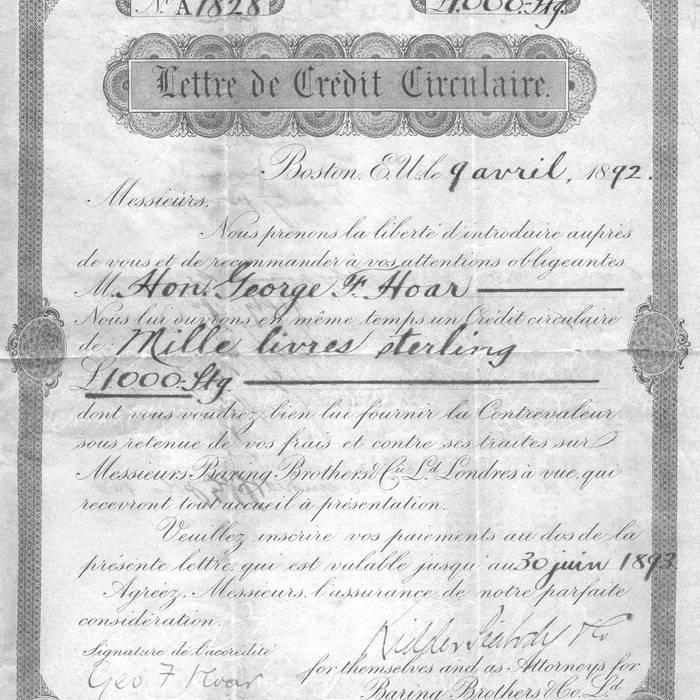 No. A1828 £1000 Stg.
Lettre de Crédit Circulaire.
Boston, E.U. le 9 avril, 1892.
Messieurs,
Nous prenons la liberté d'introduire auprès
de vous et de recommander à vos attentions obligeantes
M. Hon. George F. Hoar
Nous lui ouvrons en même temps un Crédit circulaire
de: Mille livres sterling
£1000 Stg.
dont vous voudrez bien lui fournir la Contrevaleur
sous retenue de vos frais et contre ses traites sur
Messieurs Baring Brothers & Cie. Ld. Londres à vue, qui
recevront tout accueil à présentation.
Veuillez inscrire vos paiements au dos de la
présente lettre, qui est valable jusqu'au 30 juin 1893
Agréez, Messieurs, l'assurance de notre parfaite
considération.
Kidder Peabody & Co
Signature de l'accrédité
Geo F Hoar
for themselves and as Attorneys for
Baring Brothers & Co. Ld.